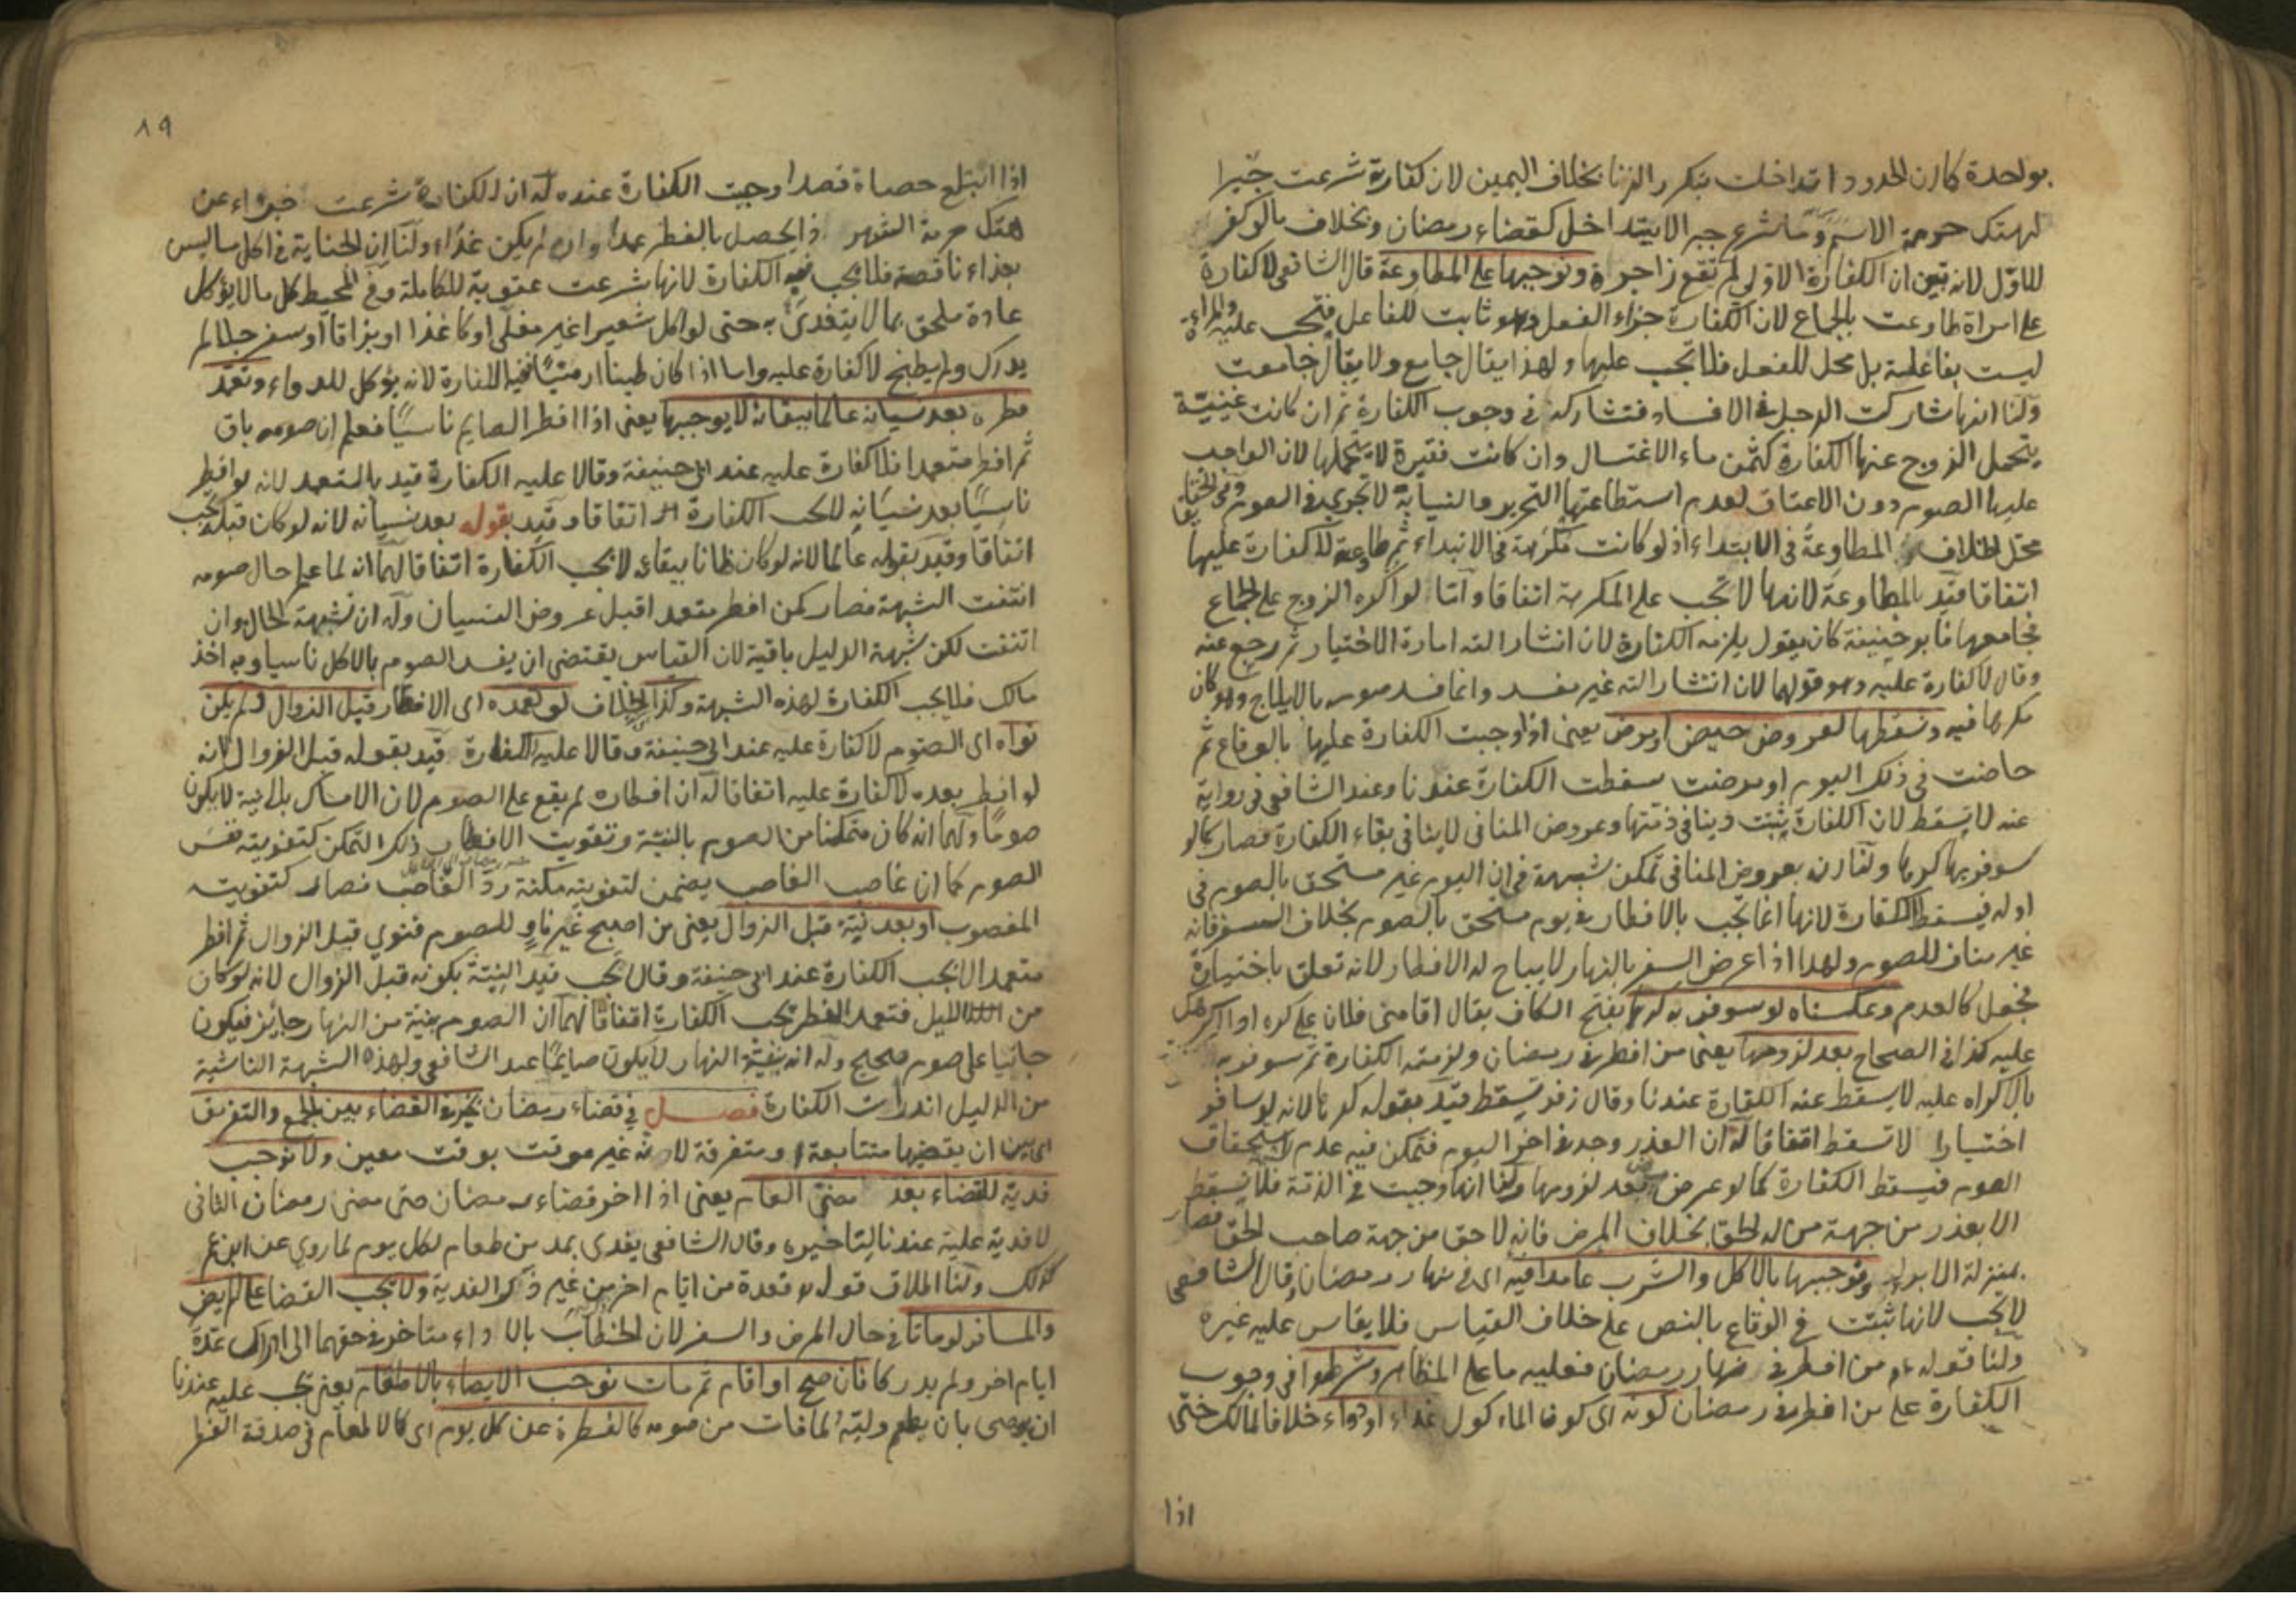 بواحدة كما ان الحدود اتداخلت بتكرر الزنا بخلاف اليمين لان كفارة شرعت جبرا
لهتك حرمة الاسم وما شرع جبرا لا يتداخل كقضاء رمضان وبخلاف ما لو كفر
للاول لانه تبين ان الكفارة الاولى لم تقع زاجرة ونوجبها على المطاوعة قال الشافعي لا كفارة
على امراة طاوعت بالجماع لان الكفارة جزاء الفعل وهو ثابت للفاعل فتجب عليه والمراءة
ليست بفاعلة بل محل للفعل فلا تجب عليها ولهذا يقال جامع ولا يقال جامعت
ولنا انها شاركت الرجل في الافساد فتشاركه في وجوب الكفارة ثم ان كانت غنية
يتحمل الزوج عنها الكفارة كثمن ماء الاغتسال وان كانت فقيرة لا يتحملها لان الواجب
عليها الصوم دون الاعتاق لعدم استطاعتها التحرير والنيابة لا تجري في الصوم وفي الحقايق
محل الخلاف المطاوعة في الابتداء اذ لو كانت مكرهة في الابتداء ثم طاوعت لا كفارة عليها
اتفاقا قيد بالمطاوعة لانها لا تجب على المكرهة اتفاقا واما لو اكره الزوج على الجماع
فجامعها فابو حنيفة كان يقول يلزمه الكفارة لان انتشار الته امارة الاختيار ثم رجع عنه
وقال لا كفارة عليه وهو قولهما لان انتشار الته غير مفسد وانما فسد صومه بالايلاج وهو كان
مكرها فيه ونسقطها لعروض حيض او مرض يعني اذا وجبت الكفارة عليها بالوقاع ثم
حاضت في ذلك اليوم او مرضت سقطت الكفارة عندنا وعند الشافعي في رواية
عنه لا يسقط لان الكفارة يثبت دينا في ذمتها وعروض المنافي لا ينافي بقاء الكفارة فصار كما لو
سوفر بها كرها ولنا ان بعروض المنافي تمكن شبهة في ان اليوم غير مستحق بالصوم في
اوله فيسقط الكفارة لانها انما تجب بالافطار في يوم مستحق بالصوم بخلاف السفر فانه
غير مناف للصوم ولهذا اذا عرض السفر بالنهار لا يباح له الافطار لانه تعلق باختياره
فجعل كالعدم وعكسناه لو سوفر به كرها بفتح الكاف يقال اقامني فلان على كره اذا اكرهك
عليه كذا في الصحاح بعد لزومها يعني من افطر في رمضان ولزمته الكفارة ثم سوفر به
بالاكراه عليه لا يسقط عنه الكفارة عندنا وقال زفر يسقط قيد بقوله كرها لانه لو سافر
اختيارا لا تسقط اتفاقا له ان العذر وجد في اخر اليوم فتمكن فيه عدم استحقاق
الصوم فيسقط الكفارة كما لو عرض مرض بعد لزومها ولنا انها وجبت في الذمة فلا يسقط
الا بعذر من جهة من له الحق بخلاف المرض فانه لاحق من جهة صاحب الحق فصار
بمنزلة الابراء ونوجبها بالاكل والشرب عامدا فيه اى في نهار رمضان وقال الشافعي
لا تجب لانها ثبتت في الوقاع بالنص على خلاف القياس فلا يقاس عليه غيره
ولنا قوله عم من افطر في نهار رمضان فعليه ما على المظاهر وشرطوا في وجوب
الكفارة على من افطر في رمضان كونه اى كون الماء كول غذاء او دواء خلافا لمالك حتى
اذا
٨٩
اذا ابتلع حصاة قصدا وجبت الكفارة عنده له ان الكفارة شرعت جزاء عن
هتك حرمة الشهر وذا يحصل بالفطر عمدا وان لم يكن غذاء ولنا ان الجناية في اكل ما ليس
بغذاء ناقصة فلا يجب فيه الكفارة لانها شرعت عقوبة للكاملة وفي المحيط كل ما لا يؤكل
عادة ملحق بما لا يتغذى به حتى لو اكل شعيرا غير مغلي او كاغذا او بزاقا او سفرجلا لم
يدرك ولم يطبخ لا كفارة عليه واما اذا كان طينا ارمنيا ففيه الكفارة لانه يؤكل للدواء وتعمد
فطره بعد نسيانه عالما ببقائه لا يوجبها يعني اذا افطر الصايم ناسيا فعلم ان صومه باق
ثم افطر متعمدا فلا كفارة عليه عند ابي حنيفة وقالا عليه الكفارة قيد بالتعمد لانه لو افطر
ناسيا بعد نسيانه لا تجب الكفارة اتفاقا وقيد بقوله بعد نسيانه لانه لو كان قبله تجب
اتفاقا وقيد بقوله عالما لانه لو كان ظانا ببقائه لا تجب الكفارة اتفاقا لهما انه لما علم حال صومه
انتفت الشبهة فصار كمن افطر متعمدا قبل عروض النسيان وله ان شبهة الحال وان
انتفت لكن شبهة الدليل باقية لان القياس يقتضي ان يفسد الصوم بالاكل ناسيا وبه اخذ
مالك فلا يجب الكفارة لهذه الشبهة وكذا الخلاف لو تعمده اى الافطار قبل الزوال ولم يكن
نواه اى الصوم لا كفارة عليه عند ابي حنيفة وقالا عليه الكفارة قيد بقوله قبل الزوال لانه
لو افطر بعده لا كفارة عليه اتفاقا له ان افطاره لم يقع على الصوم لان الامساك بلا نية لا يكون
صوما ولهما انه كان متمكنا من الصوم بالنية وتفويت الافطار ذلك التمكن كتفويته نفس
الصوم كما ان غاصب الغاصب يضمن لتفويته مكنة رد الغاصب فصار كتفويت
المغصوب او بعد نيته قبل الزوال يعني من اصبح غير ناو للصوم فنوى قبل الزوال ثم افطر
متعمدا لا تجب الكفارة عند ابي حنيفة وقالا تجب قيد النية بكونه قبل الزوال لانه لو كان
من الليل فتعمد الفطر تجب الكفارة اتفاقا لهما ان الصوم بنية من النهار جايز فيكون
جانيا على صوم صحيح وله انه بنية النهار لا يكون صايما عند الشافعي ولهذه الشبهة الناشية
من الدليل اندرات الكفارة فصل في قضاء رمضان نخير في القضاء بين الجمع والتفريق
اى بين ان يقضيها متتابعة او متفرقة لانه غير موقت بوقت معين ولا نوجب
فدية للقضاء بعد مضي العام يعني اذا اخر قضاء رمضان حتى مضى رمضان الثاني
لا فدية عليه عندنا لتاخيره وقال الشافعي يفدى بمد من طعام لكل يوم لما روي عن ابن عمر
كذلك ولنا اطلاق قوله تع فعدة من ايام اخر من غير ذكر الفدية ولا تجب القضا على المريض
والمسافر لو ماتا في حال المرض والسفر لان الخطاب بالاداء متاخر في حقهما الى ادراك عدة
ايام اخر ولم يدركا فان صح او اقام ثم مات نوجب الايصاء بالاطعام يعني تجب عليه عندنا
ان يوصي بان يطعم وليه لما فات من صومه كالفطرة عن كل يوم اى كالاطعام في صدقة الفطر